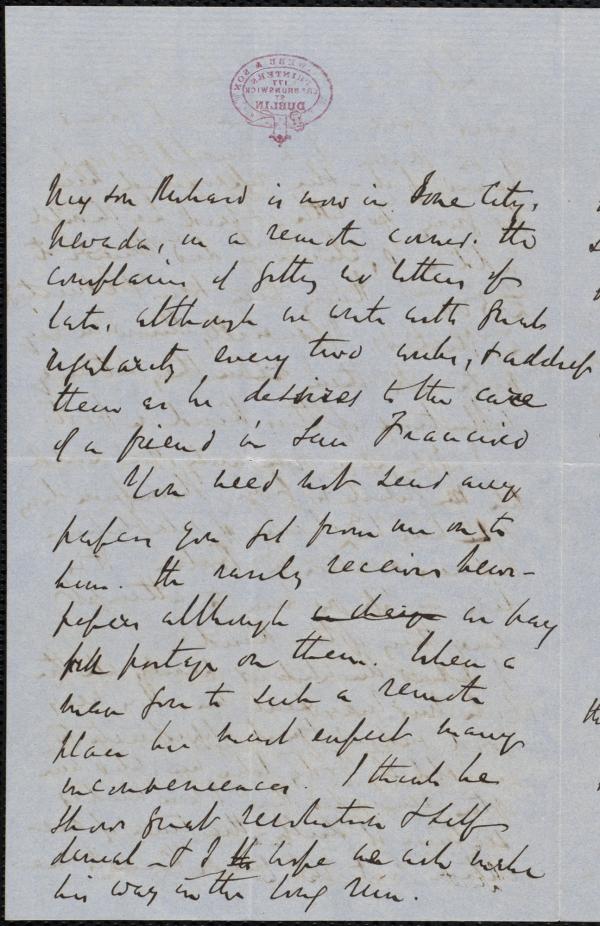 WEBB & SON
PRINTERS
177
GT BRUNSWICK
ST
DUBLIN
My son Richard is now in Ione City,
Nevada, in a remote corner. He
complains of getting no letters of
late, although we write with great
regularity every two weeks, & address
them as he desires to the care
of a friend in San Francisco
You need not send any
papers you get from me on to
him. He rarely receives news-
papers although we pay
full postage on them. When a
man goes to such a remote
place he must expect many
inconveniences. I think he
shows great resolution & self
denial - & I hope he will make
his way in the long run.